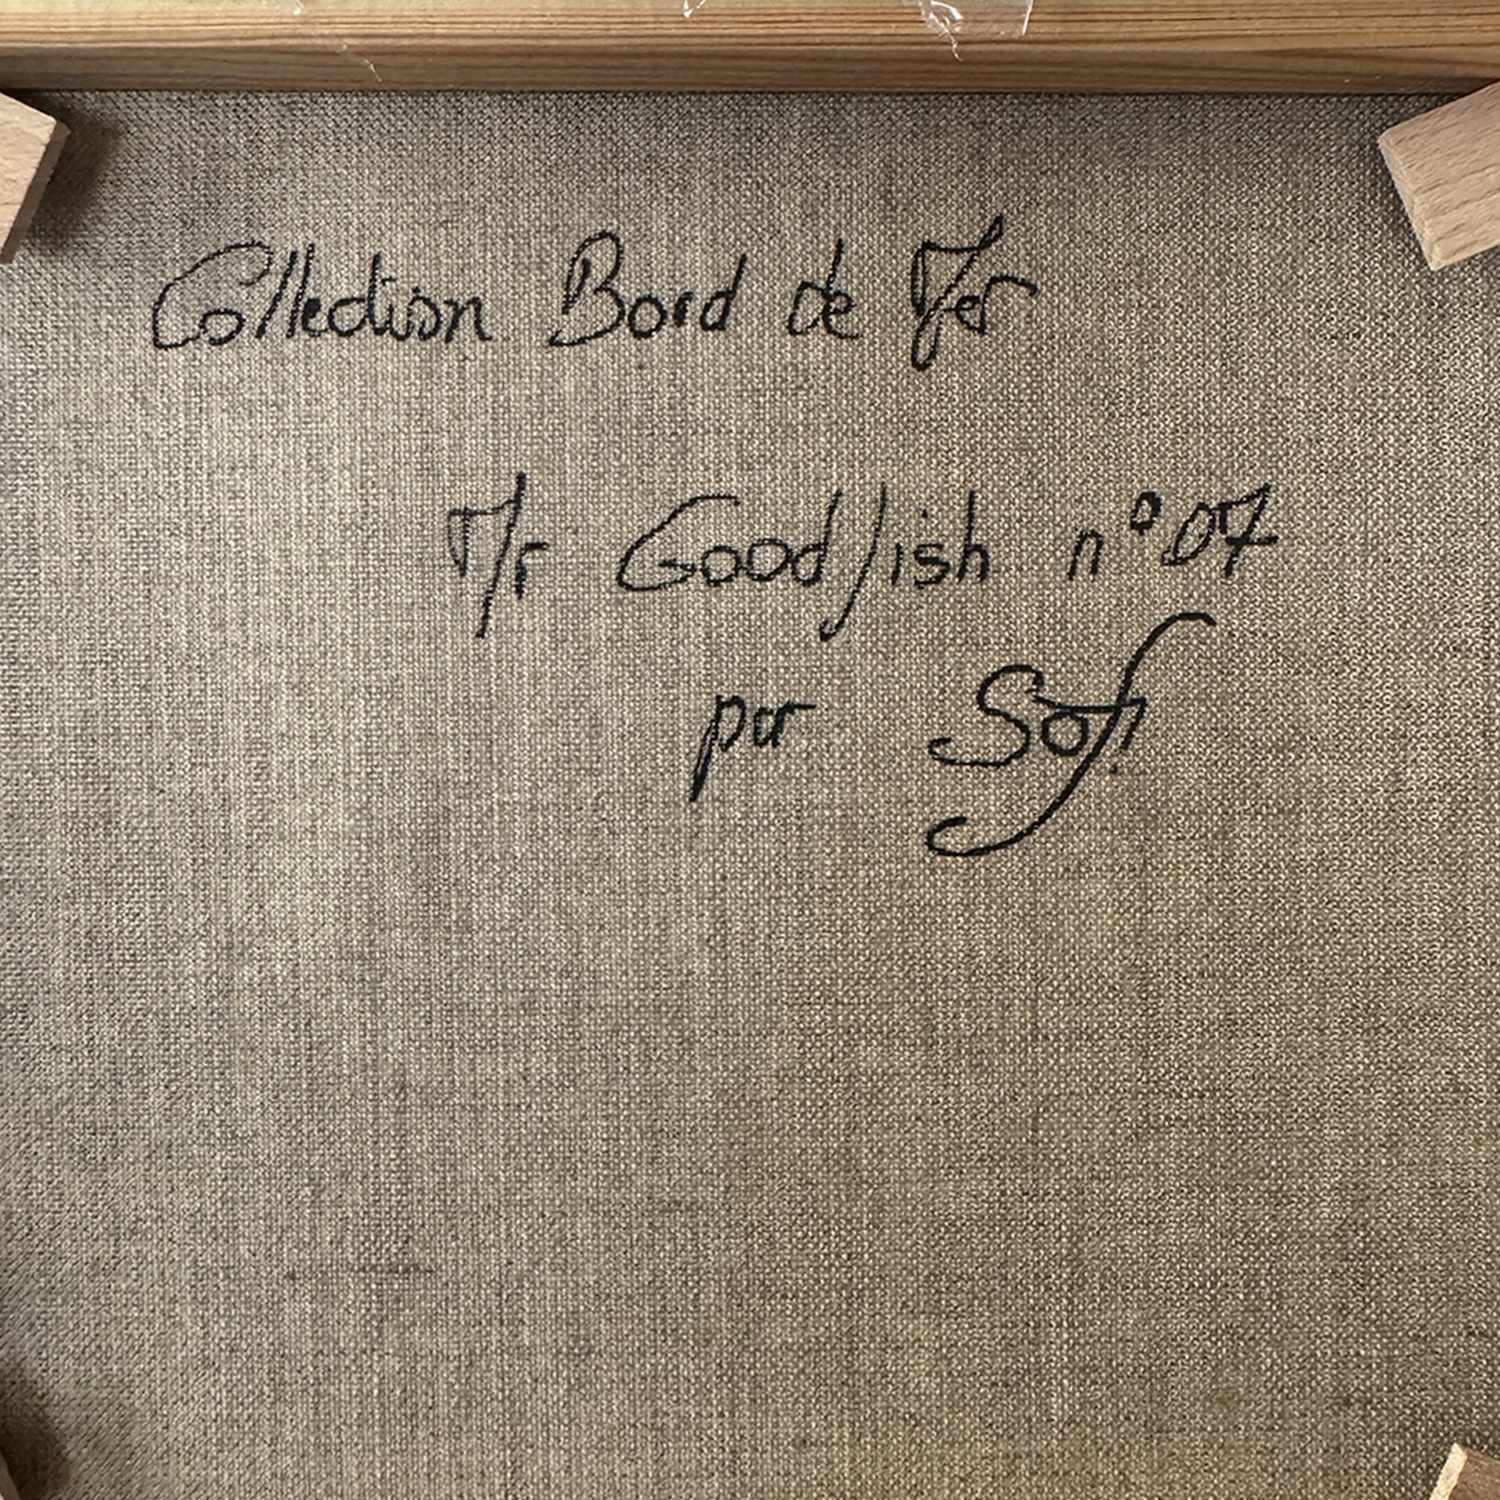 Collection Bord de Mer
Mr Goodfish n° 07
par Sofi